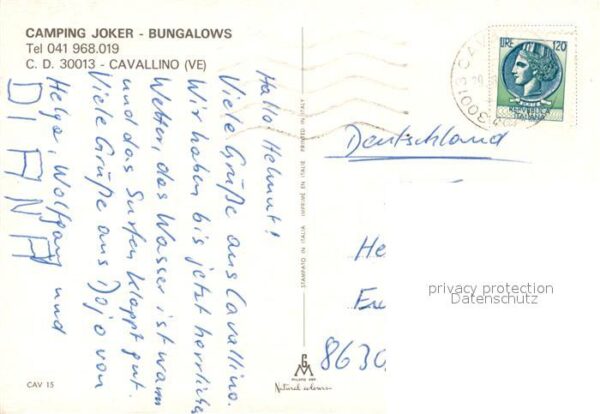 CAMPING JOKER - BUNGALOWS
Tel 041 968.019
C. D. 30013 - CAVALLINO (VE)
Hallo Helmut!
Viele Grüße aus Cavallino.
Wir haben bis jetzt herrliches
Wetter, das Wasser ist warm
und das Surfen klappt gut.
Viele Grüße aus von
Helga, Wolfgang und
DIANA
CAV 15
STAMPATO IN ITALIA IMPRIMÉ EN ITALIE PRINTED IN ITALY
Natural colours
LIRE 120
REPUBBLICA
ITALIANA
30013 CAV
Deutschland
He
8630
privacy protection
Datenschutz